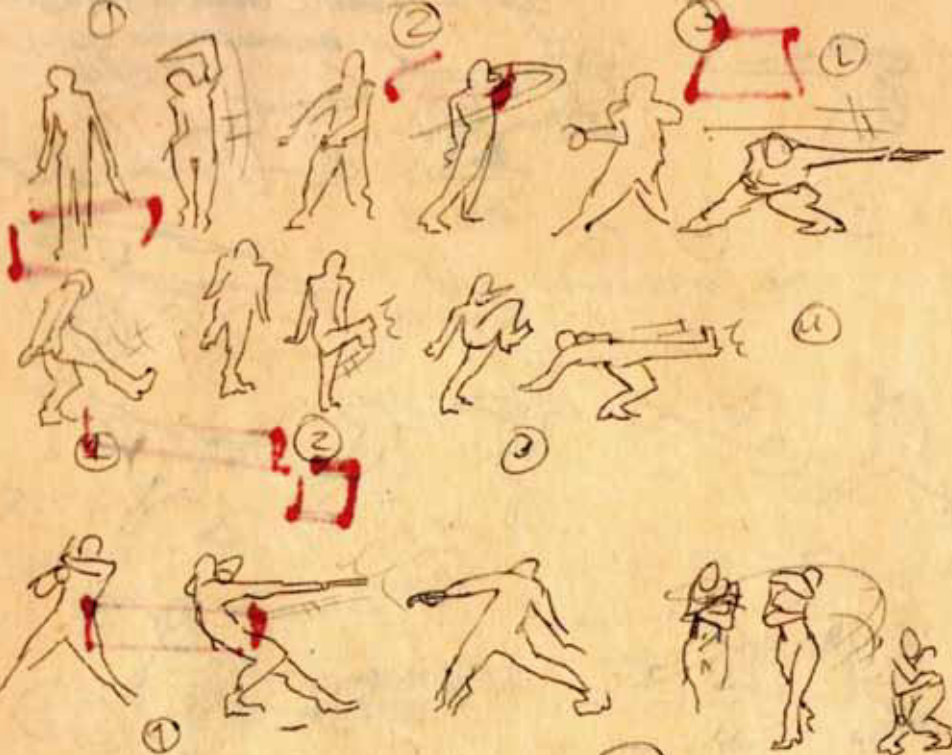 ① ② ③
L
4
① ② ③
①